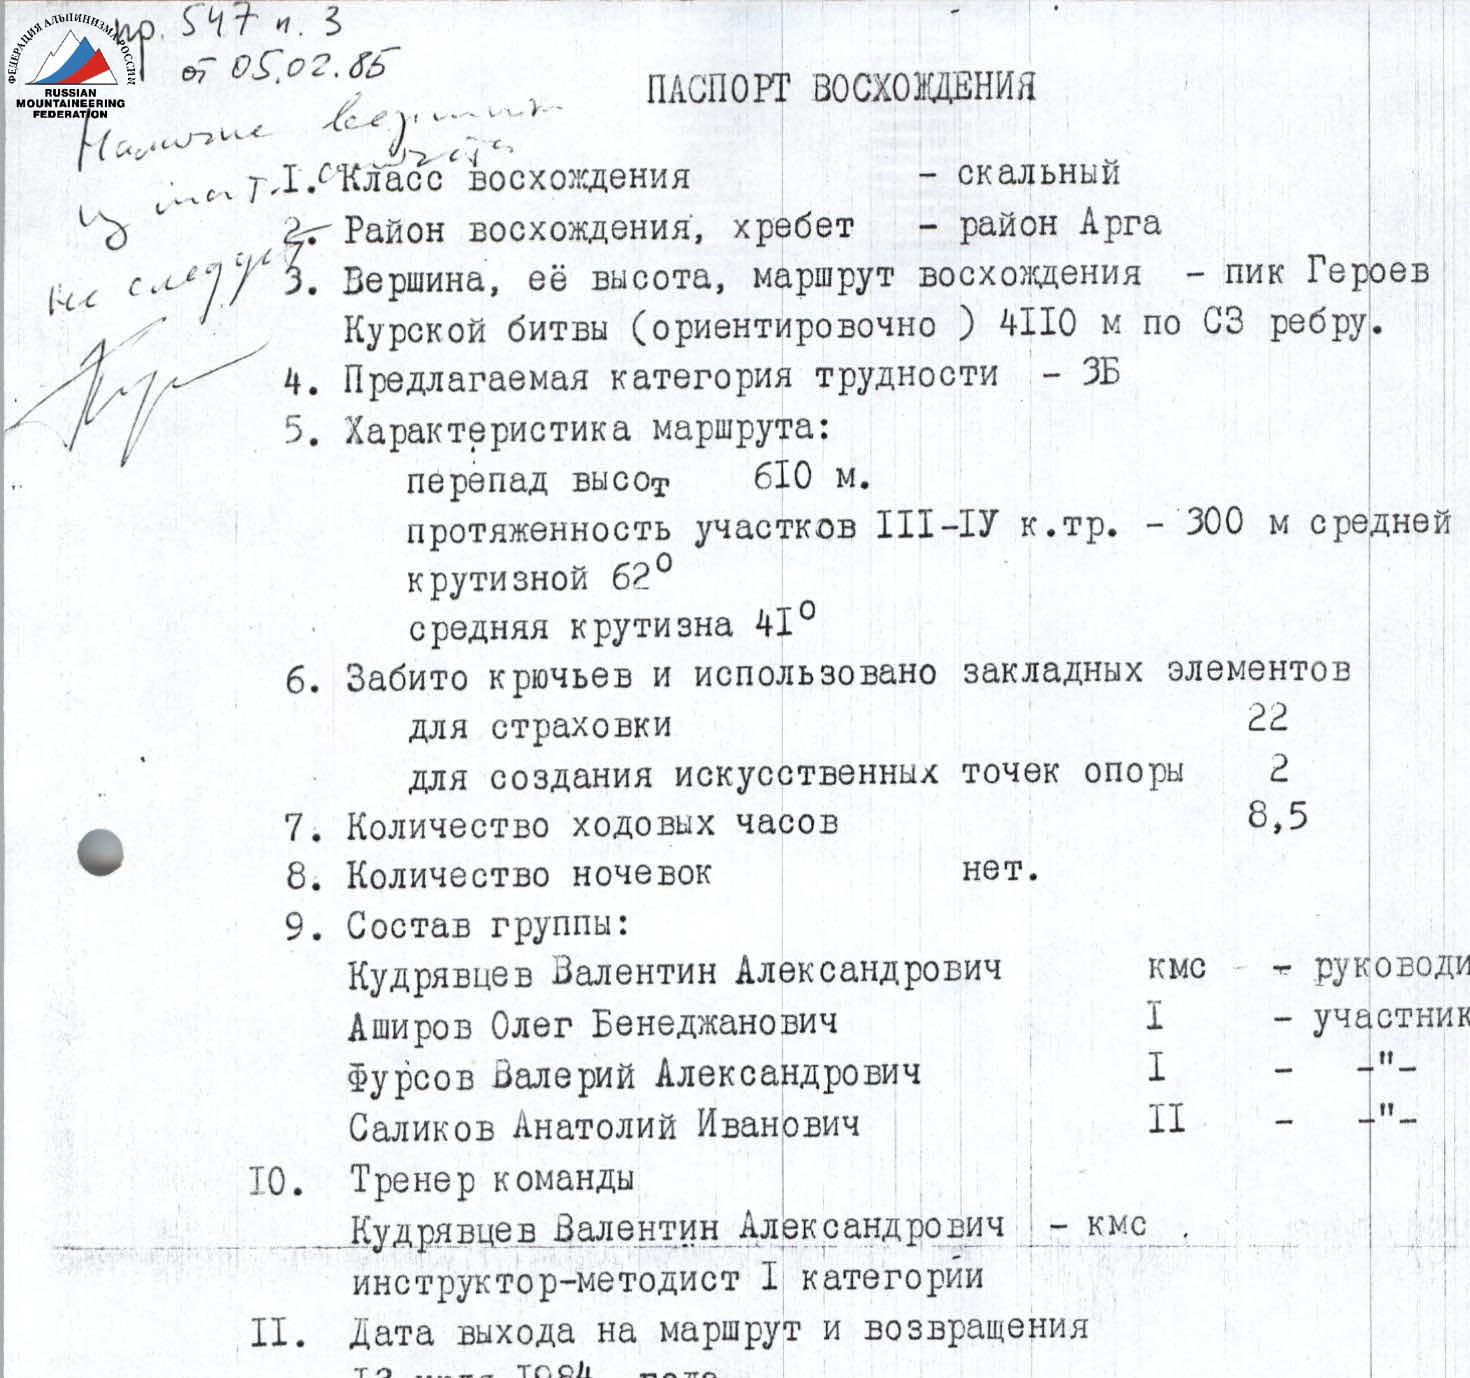 ФЕДЕРАЦИЯ АЛЬПИНИЗМА РОССИИ
RUSSIAN
MOUNTAINEERING
FEDERATION
пр. 547 п. 3
от 05.02.85
не следует
ПАСПОРТ ВОСХОЖДЕНИЯ
I. Класс восхождения - скальный
2. Район восхождения, хребет - район Арга
3. Вершина, её высота, маршрут восхождения - пик Героев
Курской битвы (ориентировочно ) 4IIO м по СЗ ребру.
4. Предлагаемая категория трудности - 3Б
5. Характеристика маршрута:
перепад высот 6IO м.
протяженность участков III-IУ к.тр. - 300 м средней
крутизной 62°
средняя крутизна 4I°
6. Забито крючьев и использовано закладных элементов
для страховки 22
для создания искусственных точек опоры 2
7. Количество ходовых часов 8,5
8. Количество ночевок нет.
9. Состав группы:
Кудрявцев Валентин Александрович кмс - руководи
Аширов Олег Бенеджанович I - участник
Фурсов Валерий Александрович I - -"-
Саликов Анатолий Иванович II - -"-
IO. Тренер команды
Кудрявцев Валентин Александрович - кмс .
инструктор-методист I категории
II. Дата выхода на маршрут и возвращения
I984 года